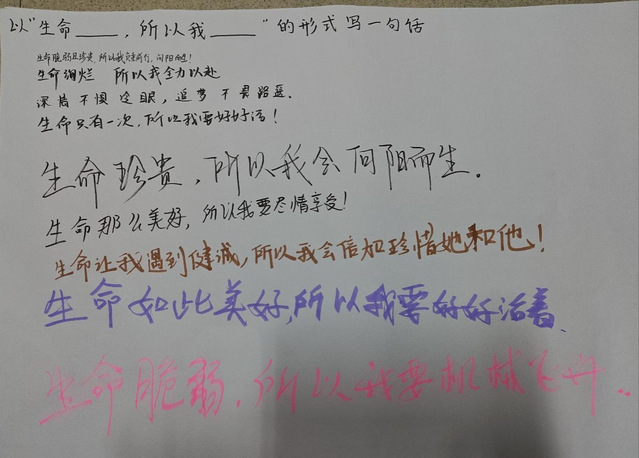 以“生命____，所以我____”的形式写一句话
生命脆弱且珍贵，所以我负重前行，向阳而生！
生命绚烂 所以我全力以赴
深情不惧冷眼，追梦不畏路遥.
生命只有一次，所以我要好好活！
生命珍贵，所以我会向阳而生.
生命那么美好，所以我要尽情享受！
生命让我遇到健诚，所以我会倍加珍惜她和他！
生命如此美好,所以我要好好活着.
生命脆弱，所以我要机械飞升..